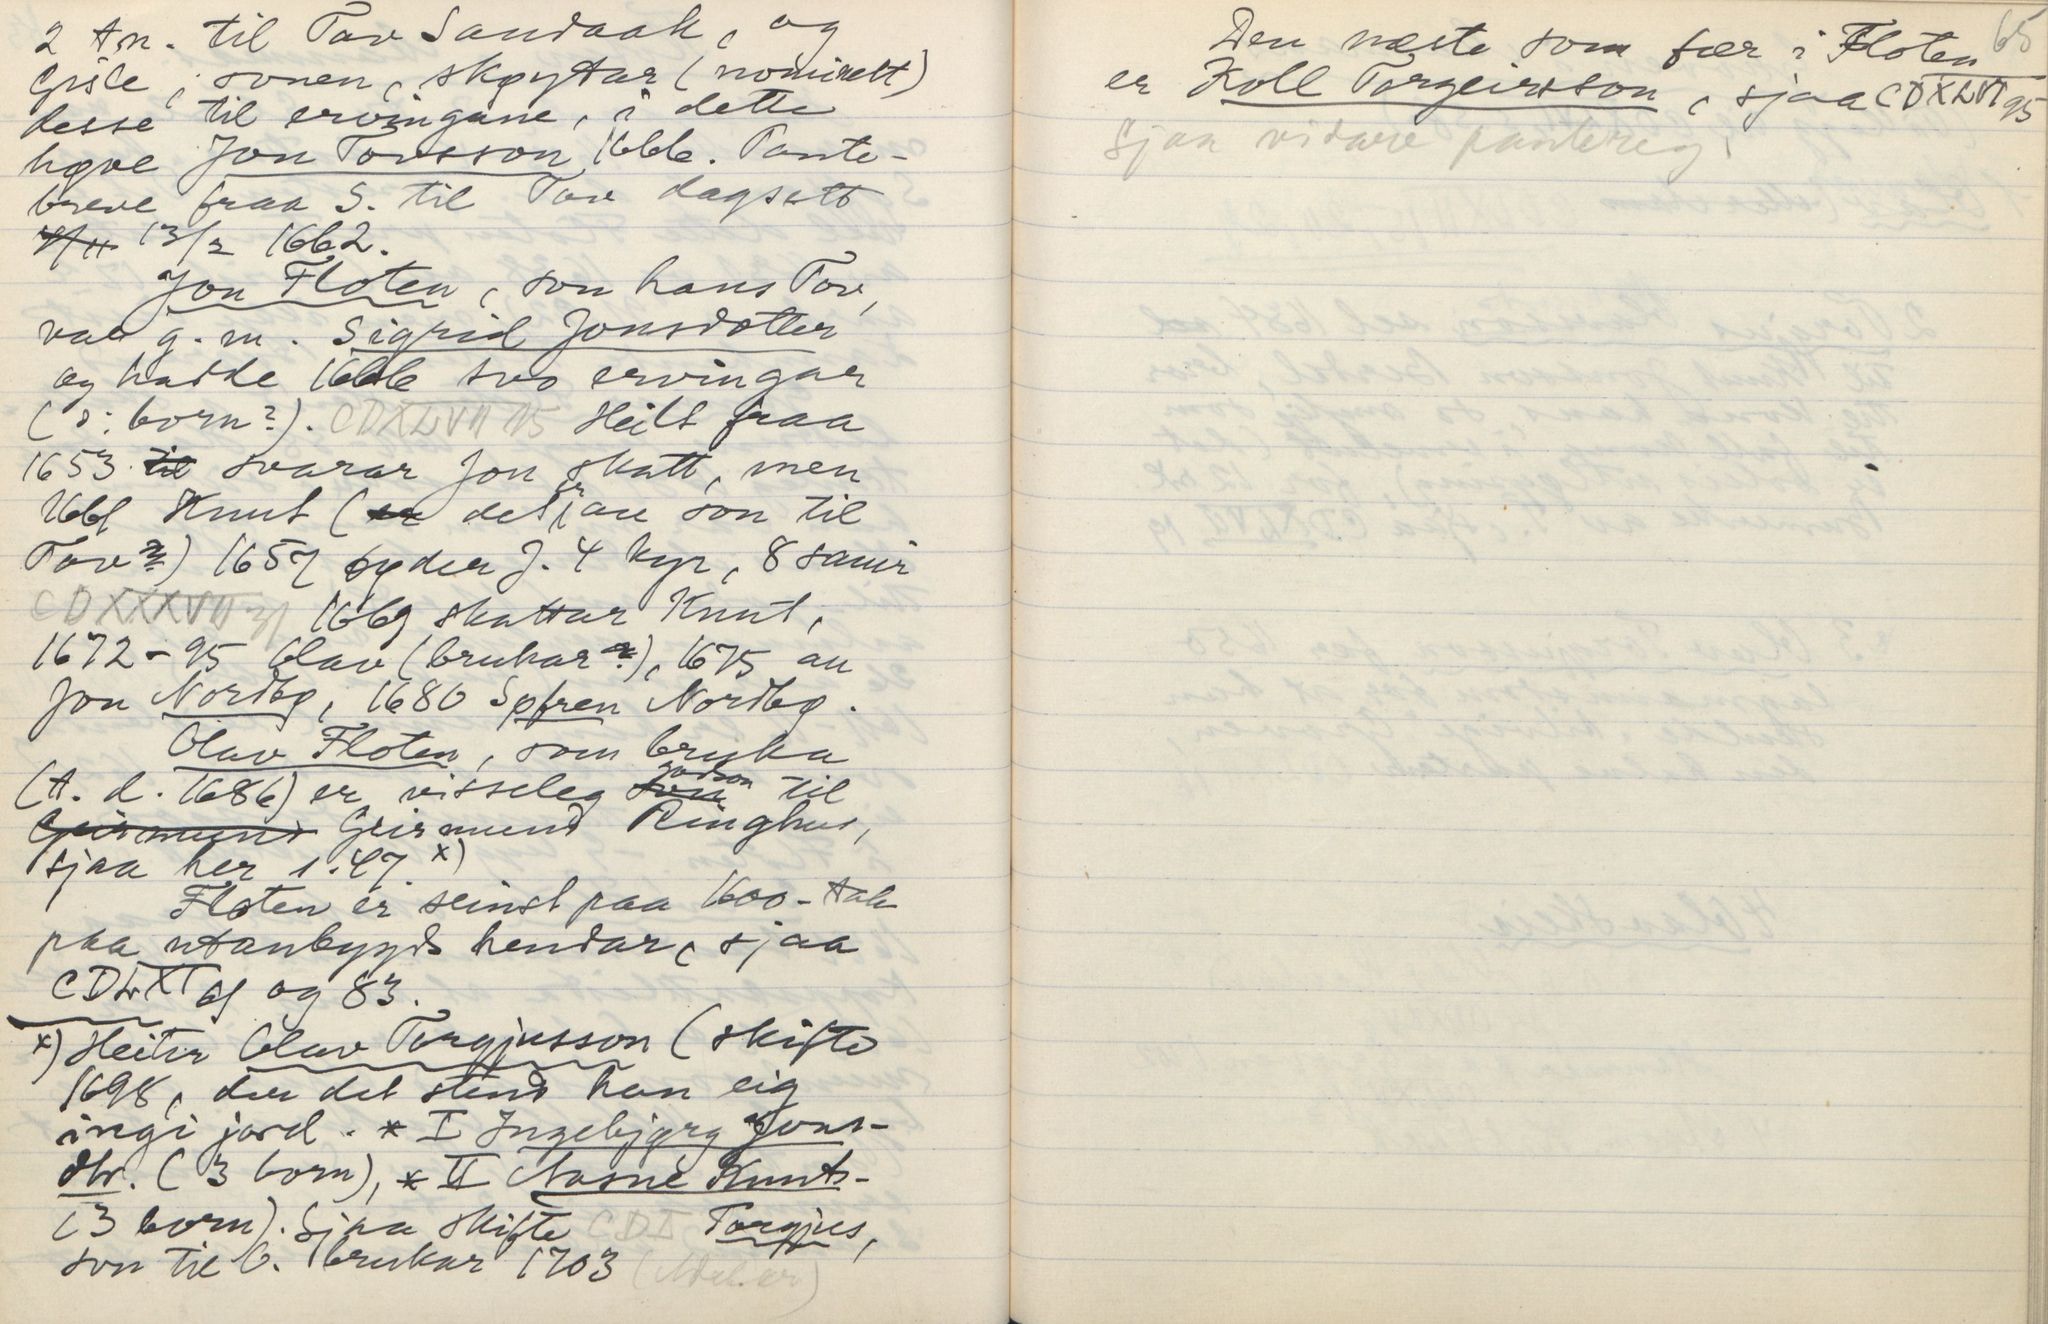 2 tn. til Tov Sandaak, og
Gisle, sonen, skøytar (nominelt)
desse til ervingane, i dette
høve Jon Tovsson 1666. Pante-
breve fraa S. til Tov dagsett
13/2 1662.
Jon Floten, son hans Tov,
var g. m. Sigrid Jonsdotter
og hadde 1666 tvo ervingar
(ɔ: born?). CDXLVII 15 Heilt fraa
1653 til svarar Jon skatt, men
1661 Knut (er det jau son til
Tov?) 1657 syder J. 4 kyr, 8 sauir
CDXXXVII 31 1669 skattar Knut,
1672-95 Olav (brukar?), 1675 au
Jon Nordbø, 1680 Søfren Nordbø.
Olav Floten, som bruka
(t. d. 1686) er visseleg son godson til
Geirmund Geirmund Ringhus,
sjaa her s. 47. x)
Floten er seinst paa 1600-tale
paa utanbygds hendar, sjaa
CDLXI 61 og 83.
x) Heiter Olav Torgjusson (skifte
1698, der det stend han eig
ingi jord. * I Ingebjørg Jons-
dtr. (3 born), * II Aasne Knuts-
(3 born). Sjaa skifte CDL Torgjus,
son til O. brukar 1703
65
Den næste som fær i Floten
er Koll Torgeirsson, sjaa CDXLVI 95
Sjaa vidare pantereg.